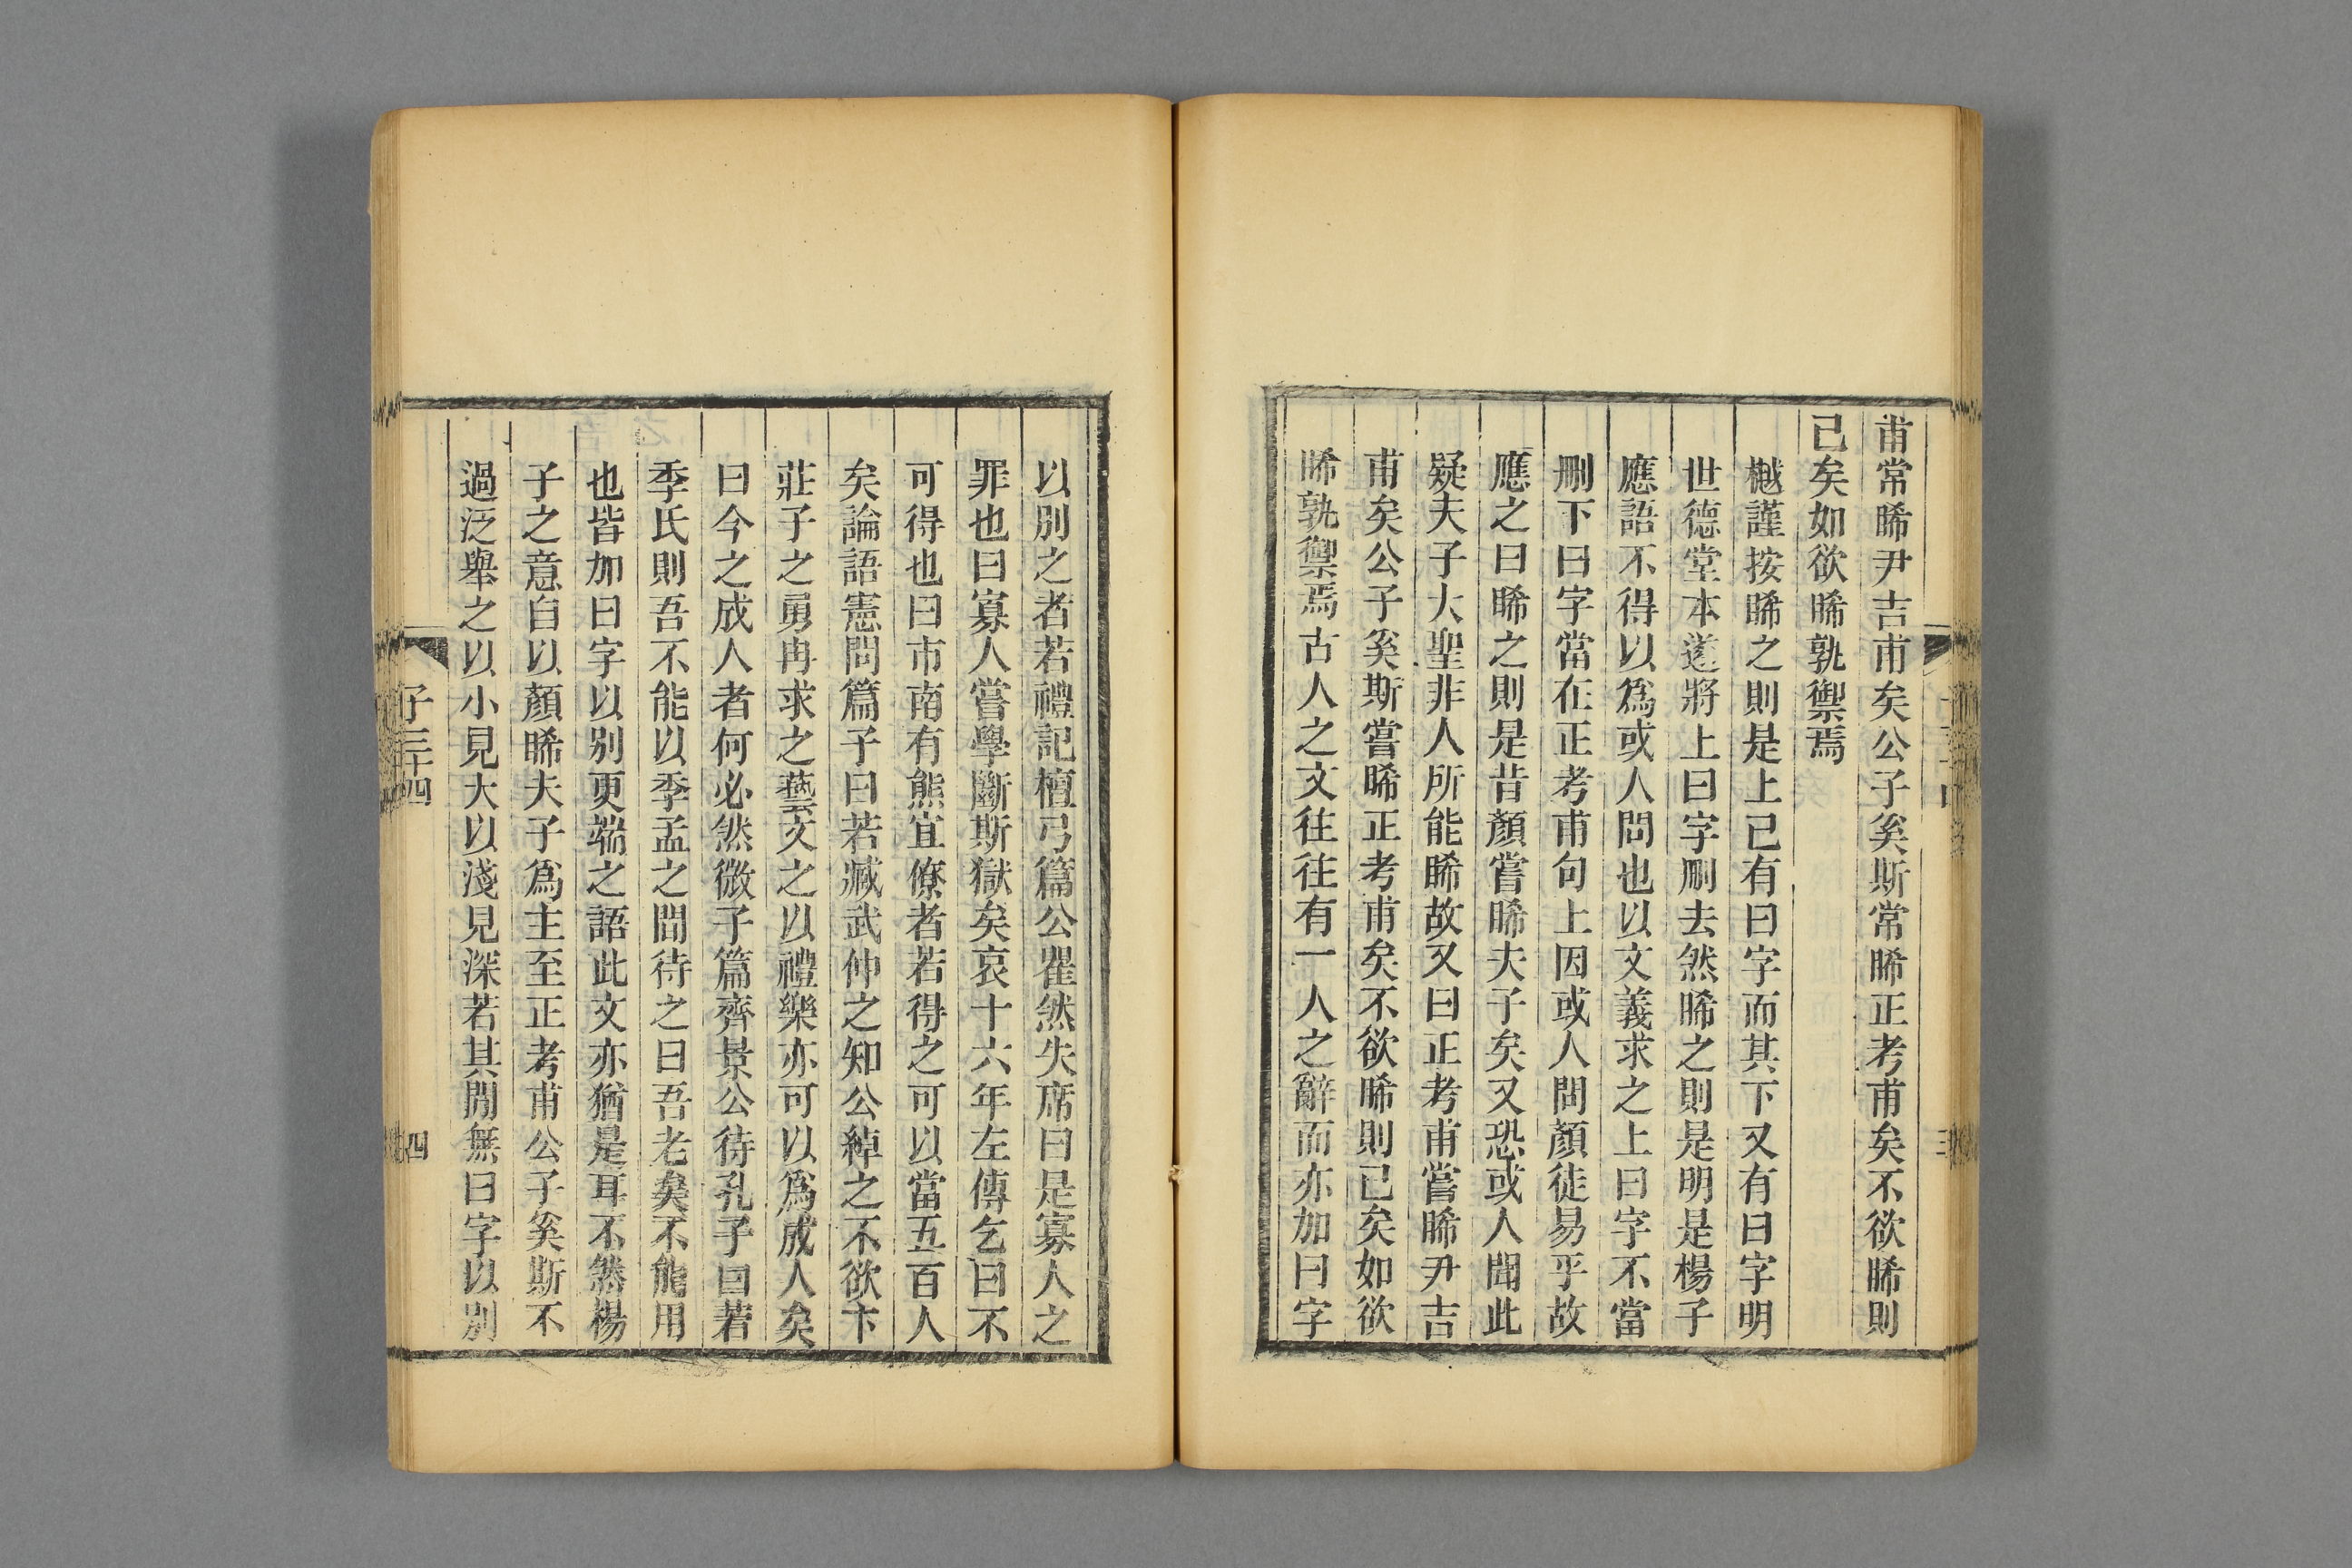 甫常睎尹吉甫矣公子奚斯常睎正考甫矣不欲睎則
已矣如欲睎孰禦焉
樾謹按睎之則是上已有曰字而其下又有曰字明
世德堂本遂將上曰字刪去然睎之則是明是楊子
應語不得以爲或人問也以文義求之上曰字不當
刪下曰字當在正考甫句上因或人問顏徒易乎故
應之曰睎之則是昔顏嘗睎夫子矣又恐或人聞此
疑夫子大聖非人所能睎故又曰正考甫嘗睎尹吉
甫矣公子奚斯嘗睎正考甫矣不欲睎則已矣如欲
睎孰禦焉古人之文往往有一人之辭而亦加曰字
以別之者若禮記檀弓篇公瞿然失席曰是寡人之
罪也曰寡人嘗學斷斯獄矣哀十六年左傳乞曰不
可得也曰市南有熊宜僚者若得之可以當五百人
矣論語憲問篇子曰若臧武仲之知公綽之不欲卞
莊子之勇冉求之藝文之以禮樂亦可以爲成人矣
曰今之成人者何必然微子篇齊景公待孔子曰若
季氏則吾不能以季孟之閒待之曰吾老矣不能用
也皆加曰字以別更端之語此文亦猶是耳不然楊
子之意自以顏睎夫子爲主至正考甫公子奚斯不
過泛舉之以小見大以淺見深若其閒無曰字以別
子三十四
四